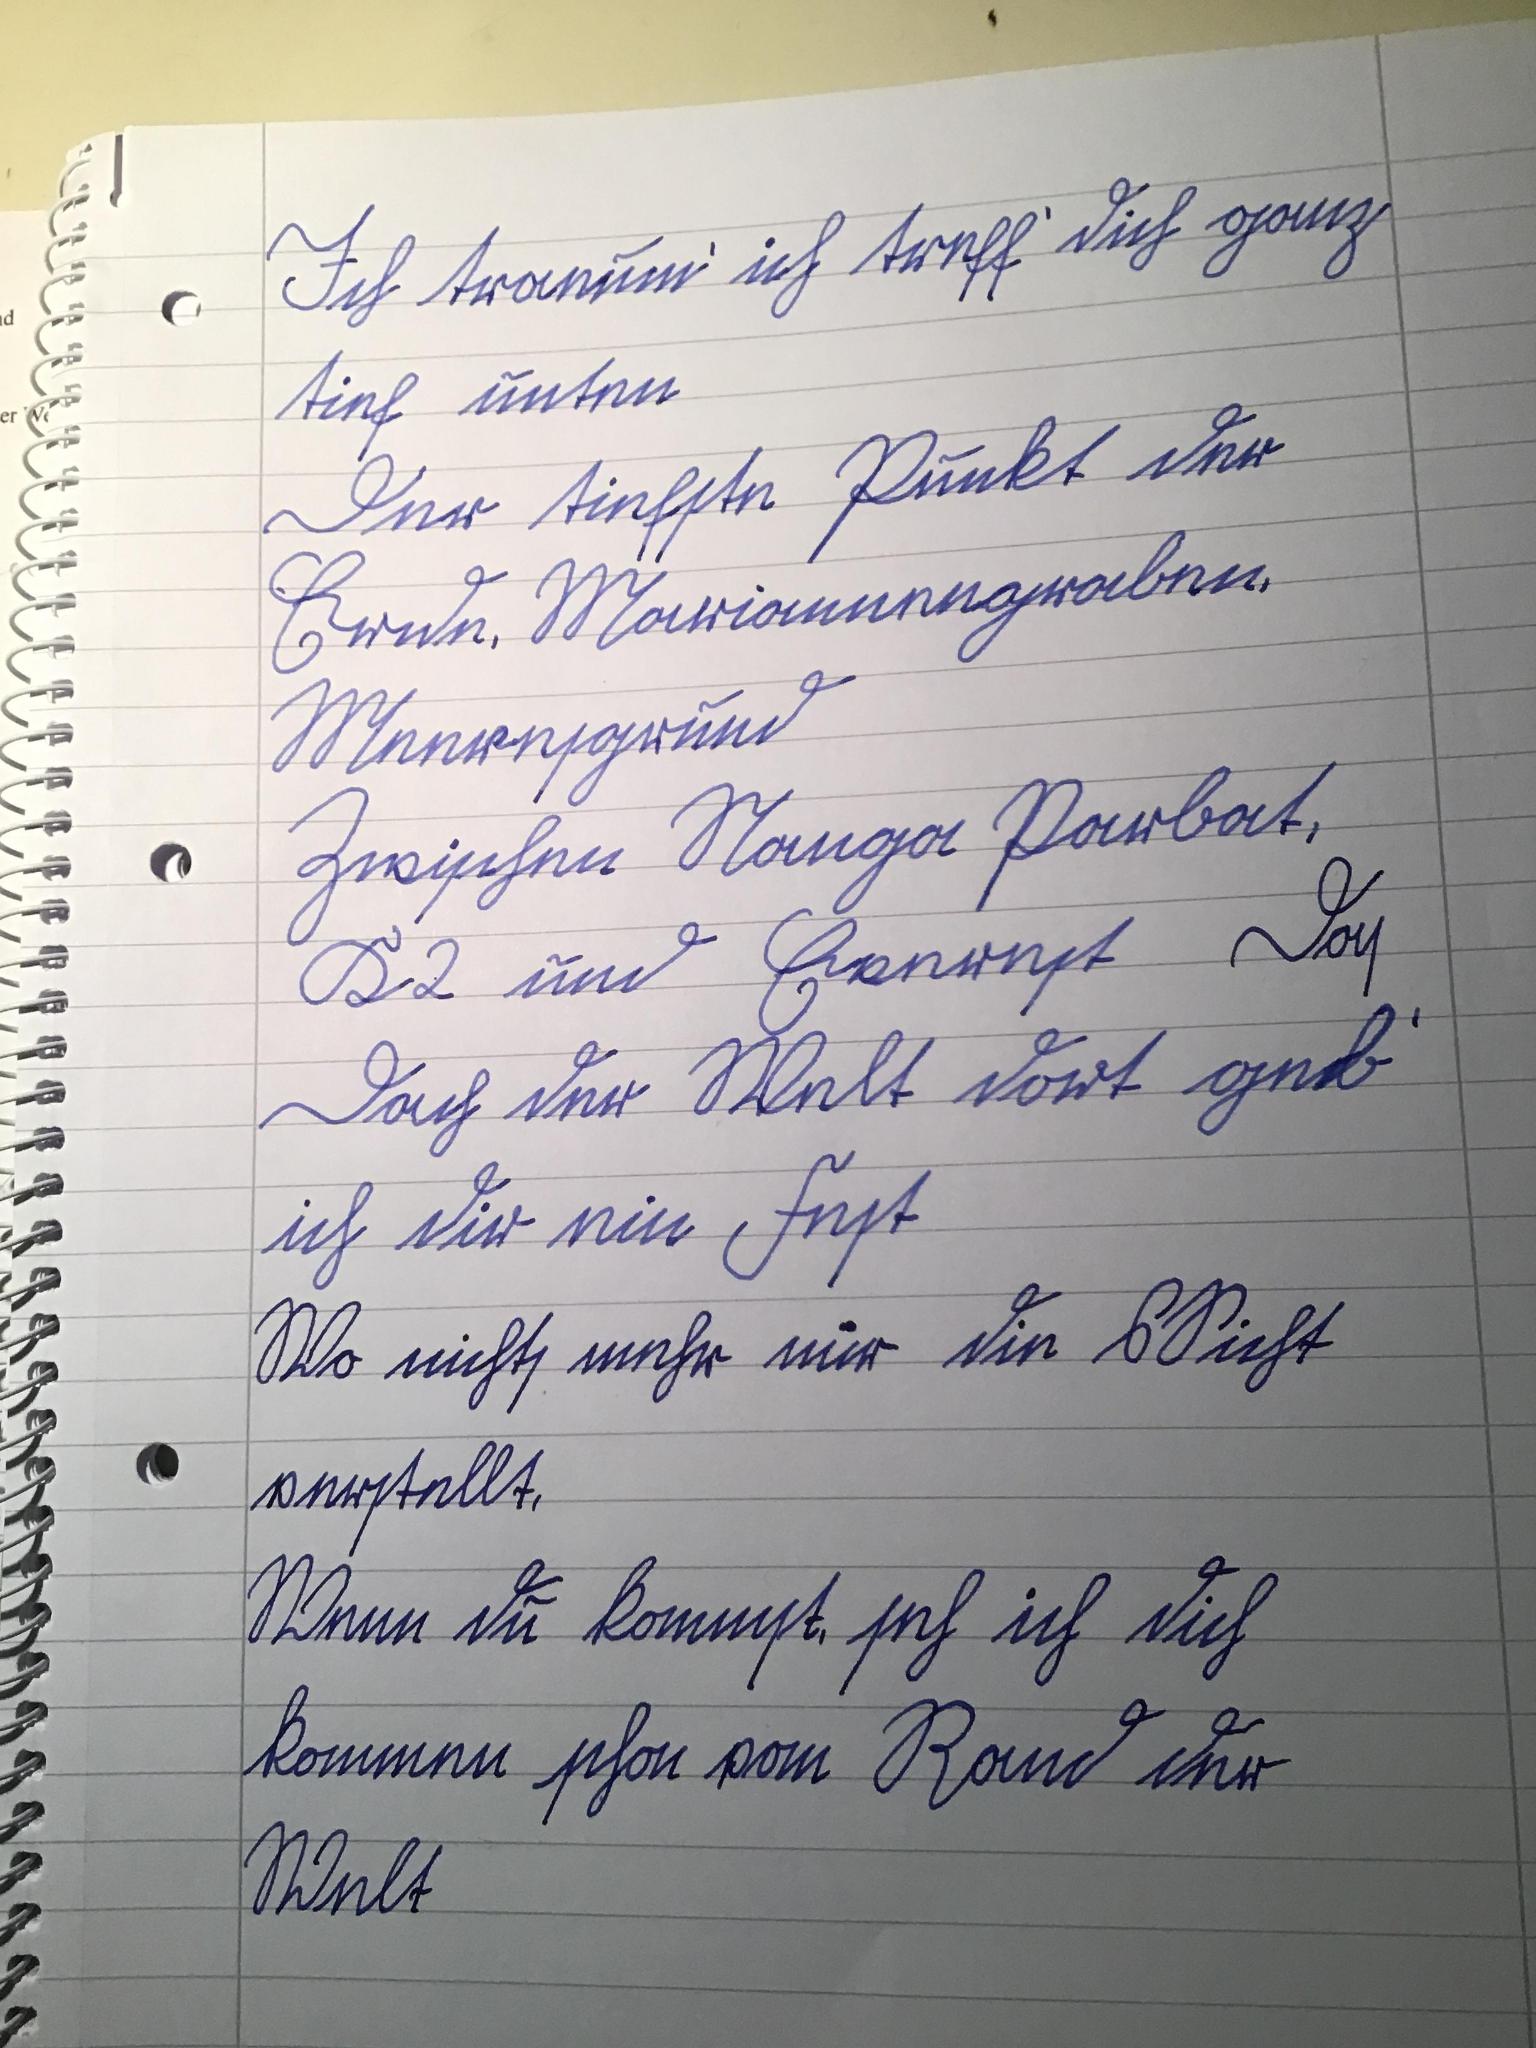 Ich traeum' ich treff' dich ganz
tief unten
Der tiefste Punkt der
Erde, Mariannengraben,
Meeresgrund
Zwischen Nanga Parbat,
K2 und Everest Das
Dach der Welt dort geb'
ich dir ein Fest
Wo nichts mehr mir die Sicht
verstellt,
Wenn du kommst, seh ich dich
kommen schon vom Rand der
Welt
nd